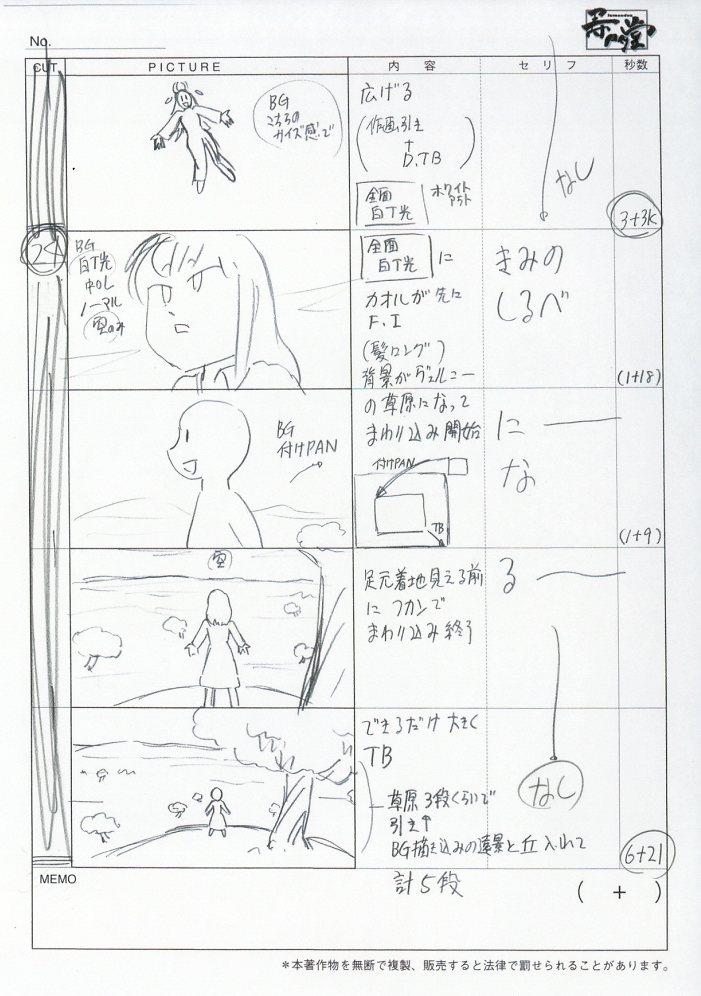 No.
CUT
PICTURE
内容
セリフ
秒数
BG
こちらの
サイズ感で
広げる
(作画引き
+
D.TB)
全面
白T光
ホワイト
アウト
なし
3+3K
24
BG
白T光
中OL
ノーマル
空のみ
全面
白T光
に
カオルが先に
F.I
(髪ロング)
背景がヴェルニー
きみの
しるべ
(1+18)
BG
付けPAN
の草原になって
まわり込み開始
付けPAN
TB
に
な
(1+9)
空
足元着地見える前
にフカンで
まわり込み終了
る
できるだけ大きく
TB
草原3段くらいで
引き↑
BG描き込みの遠景と丘入れて
なし
6+21
計5段
MEMO
( + )
*本著作物を無断で複製、販売すると法律で罰せられることがあります。